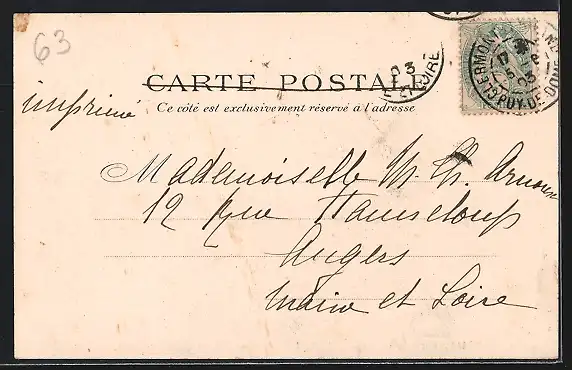 63
CARTE POSTALE
Ce côté est exclusivement réservé à l'adresse
imprimé
Mademoiselle M. Ch. Arnoux
12 Rue Hanneloup
Angers
Maine et Loire
23
ET-LOIRE
CLERMONT
PUY-DE-DOME
03